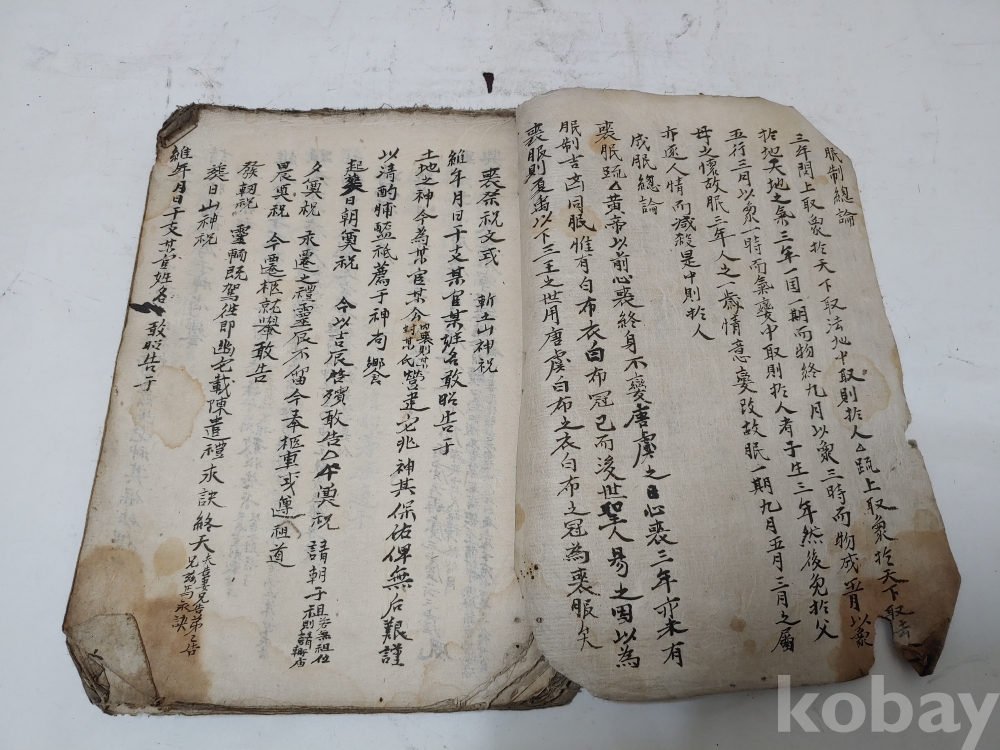 服制總論
三年問上取象於天下取法地中取則於人△疏上取象於天下取法
於地天地之氣三年一閏一期而物終九月以象三時而物成五月以象
五行三月以象一時而氣變中取則於人者子生三年然後免於父
母之懷故服三年人之一歲情意變改故服一期九月五月三月之屬
亦逐人情而減殺是中則於人
成服總論
喪服疏△黃帝以前心喪終身不變唐虞之日心喪三年亦未有
服制吉凶同服惟有白布衣白布冠已而後世聖人易之因以為
喪服則夏禹以下三王之世用唐虞白布之衣白布之冠為喪服矣
喪祭祝文式 斬土山神祝
維年月日干支某官某姓名敢昭告于
土地之神今為某官某公 營建宅兆神其保佑俾無后艱謹
以清酌脯醢祗薦于神尚饗
起葬日朝奠祝 今以吉辰啓殯敢告△午奠祝 請朝于祖
夕奠祝 永遷之禮靈辰不留今奉柩車式遵祖道
晨奠祝 今遷柩就轝敢告
發靷祝 靈輀既駕往即幽宅載陳遣禮永訣終天
葬日山神祝
維年月日干支某官姓名敢昭告于
kobay